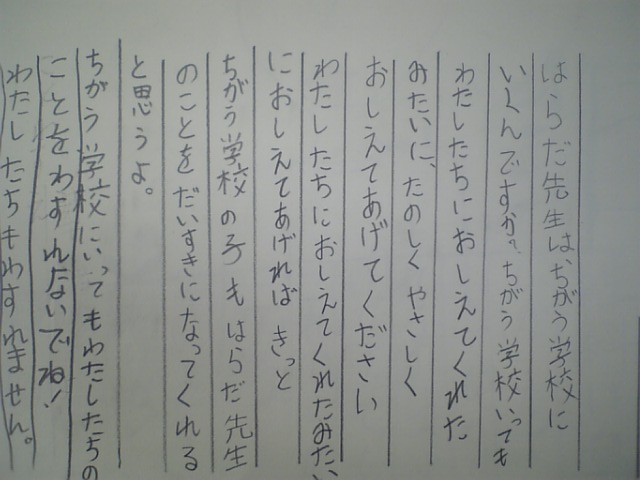 はらだ先生は、ちがう学校に
いくんですか?ちがう学校いっても
わたしたちにおしえてくれた
みたいに、たのしくやさしく
おしえてあげてください
わたしたちにおしえてくれたみたい
におしえてあげれば きっと
ちがう学校の子もはらだ先生
のことをだいすきになってくれる
と思うよ。
ちがう学校にいってもわたしたちの
ことをわすれないでね!
わたしたちもわすれません。